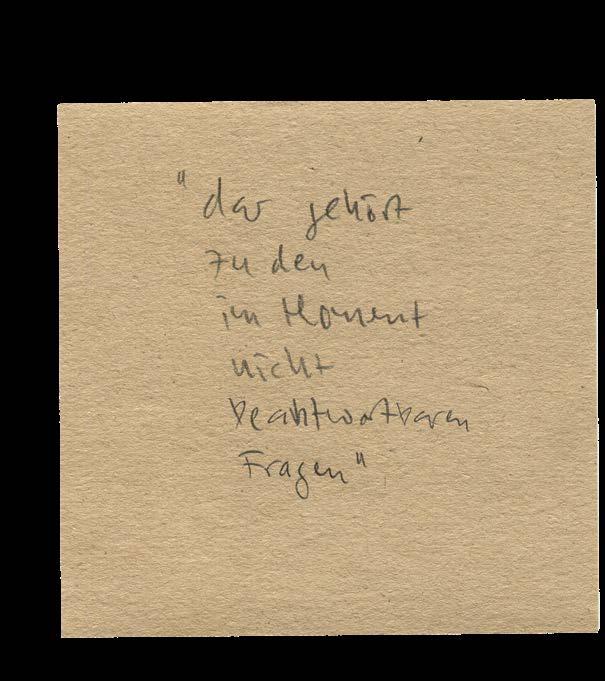 "das gehört
zu den
im Moment
nicht
beantwortbaren
Fragen"